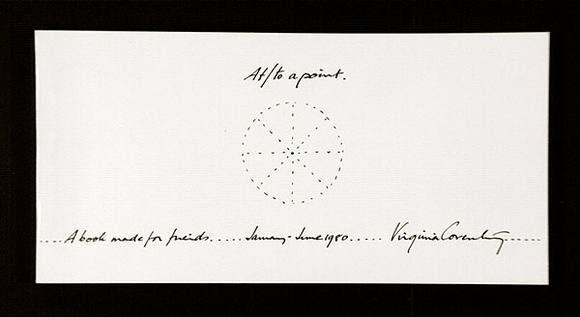 At/to a point.
....A book made for friends.....January-June 1980.....Virginia Coventry......